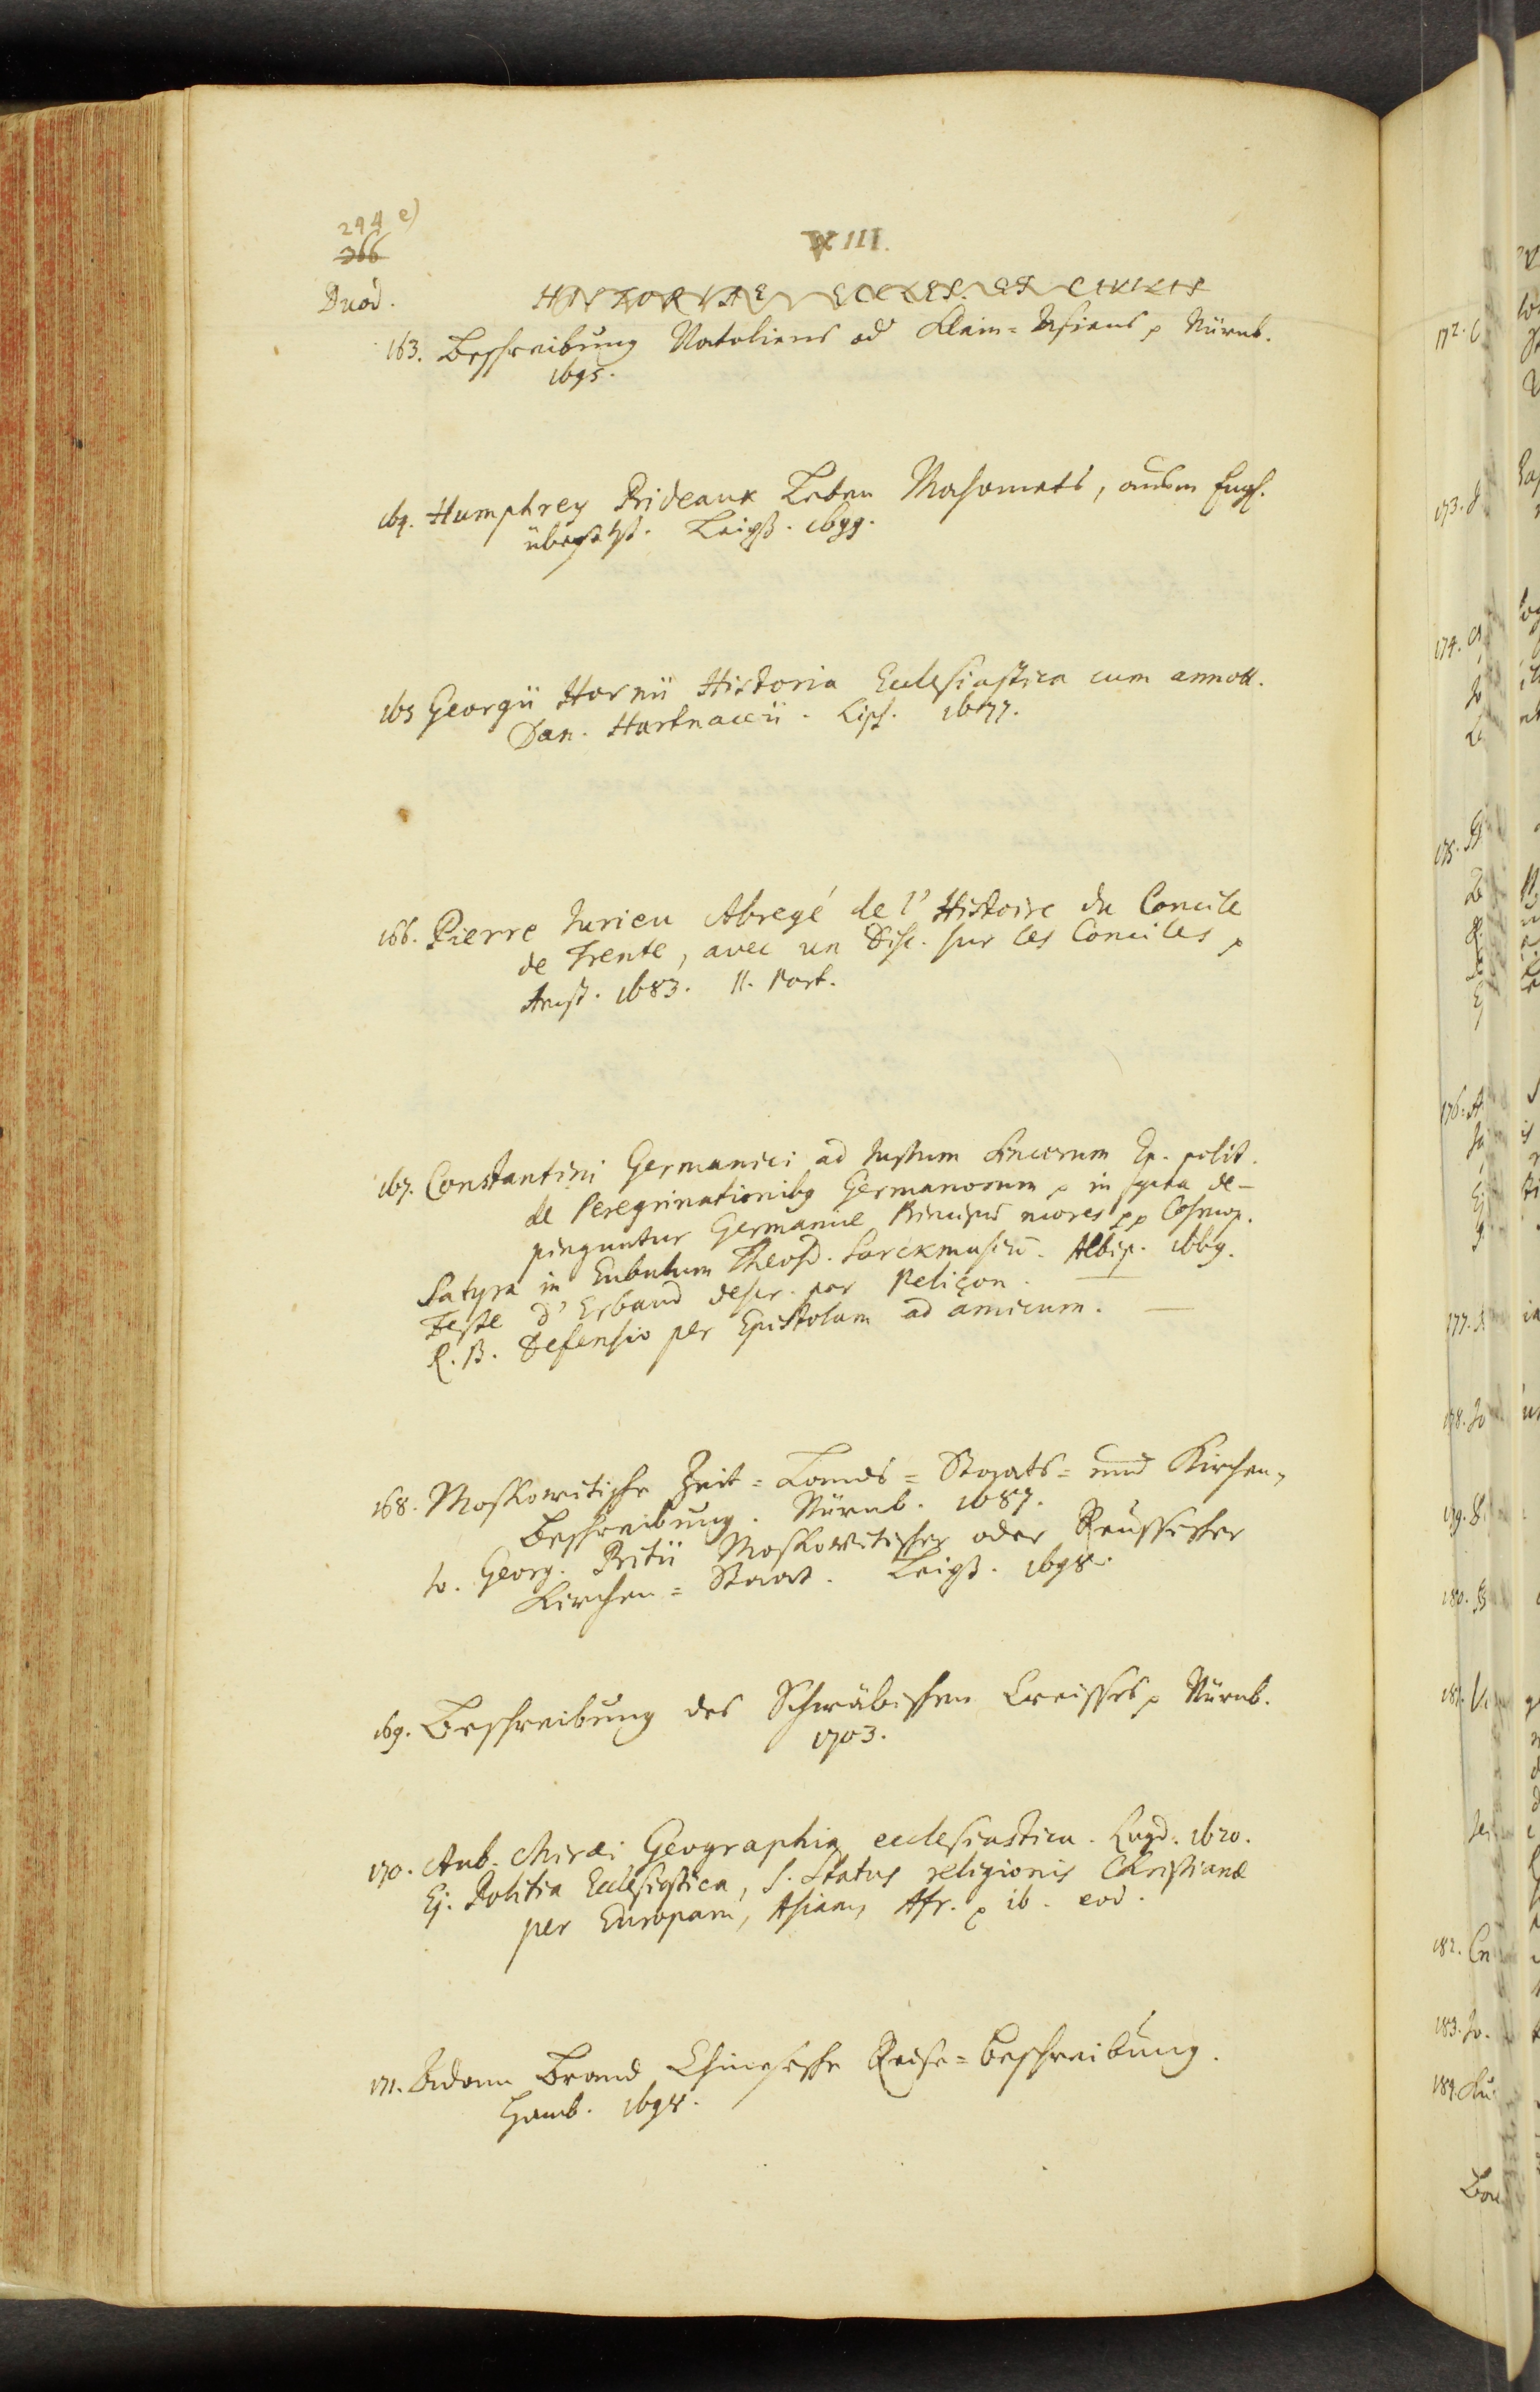 294 e)
366
XIII.
Duod.
HISTORIAE ECCLES. ET CIVILIS
163. Beschreibung Natoliens od Klein-Asiens p Nürnb.
1695.
164. Humphrey Prideaux Leben Mahomets, außm Engl.
übersetzt. Leipz. 1699.
165 Georgii Hornii Historia Ecclesiastica cum annott.
Dan. Hartnaccii. Lips. 1677.
166. Pierre Jurieu Abregé de l'Histoire du Concile
de Trente, avec un Disc. sur les Conciles p
Amst. 1683. II. Part.
167. Constantini Germanici ad Justum Sincerum Ep. polit.
de Peregrinationibg Germanorum p in qua de-
pinguntur Germaniae Principũ mores pp Cosmop.
Satyra in Eubulum Theosd. Sarckmasiũ. Albip. 1669.
Feste d'Erbaud descr. par Peliçon. —
R. B. Defensio per Epistolam ad amicum. —
168. Moskowitische Zeit-Landes-Staats- und Kirchen-
Beschreibung. Nürnb. 1687.
Jo. Georg. Pritii Moskowitischer oder Reussischer
Kirchen-Staat. Leipz. 1698.
169. Beschreibung des Schwäbischen Creisses p Nürnb.
1703.
170. Aub. Miraei Geographia ecclesiastica. Lugd. 1620.
Ej. Politia Ecclesiastica, s. Status religionis Christianae
per Europam, Asiam, Afr. p ib. eod.
171. Adam Brand Chinesische Reise-Beschreibung.
Hamb. 1698.
172.
173.
174.
175.
176.
177.
178. Jo
179.
180.
181.
182.
183. Jo.
184.